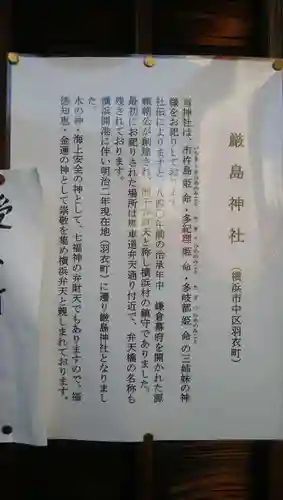 厳島神社
(横浜市中区羽衣町)
当神社は 市杵島姫命・多紀理姫命・多岐都姫命の三姉妹の神
いちきしまひめのみこと
様をお祀りしております
社伝によりますと 八四〇年前の治承年中 鎌倉幕府を開かれた源
頼朝公が創建され 弁天と称し横浜村の鎮守でありました。
最初にお祀りされた場所は馬車道弁天通り付近で、弁天橋の名称も
残されております。
横浜開港に伴い明治二年現在地(羽衣町)に遷り厳島神社となりまし
た。
水の神・海上安全の神として、七福神の弁財天でもありますので、福
徳知恵・金運の神として崇敬を集め横浜弁天と親しまれております。